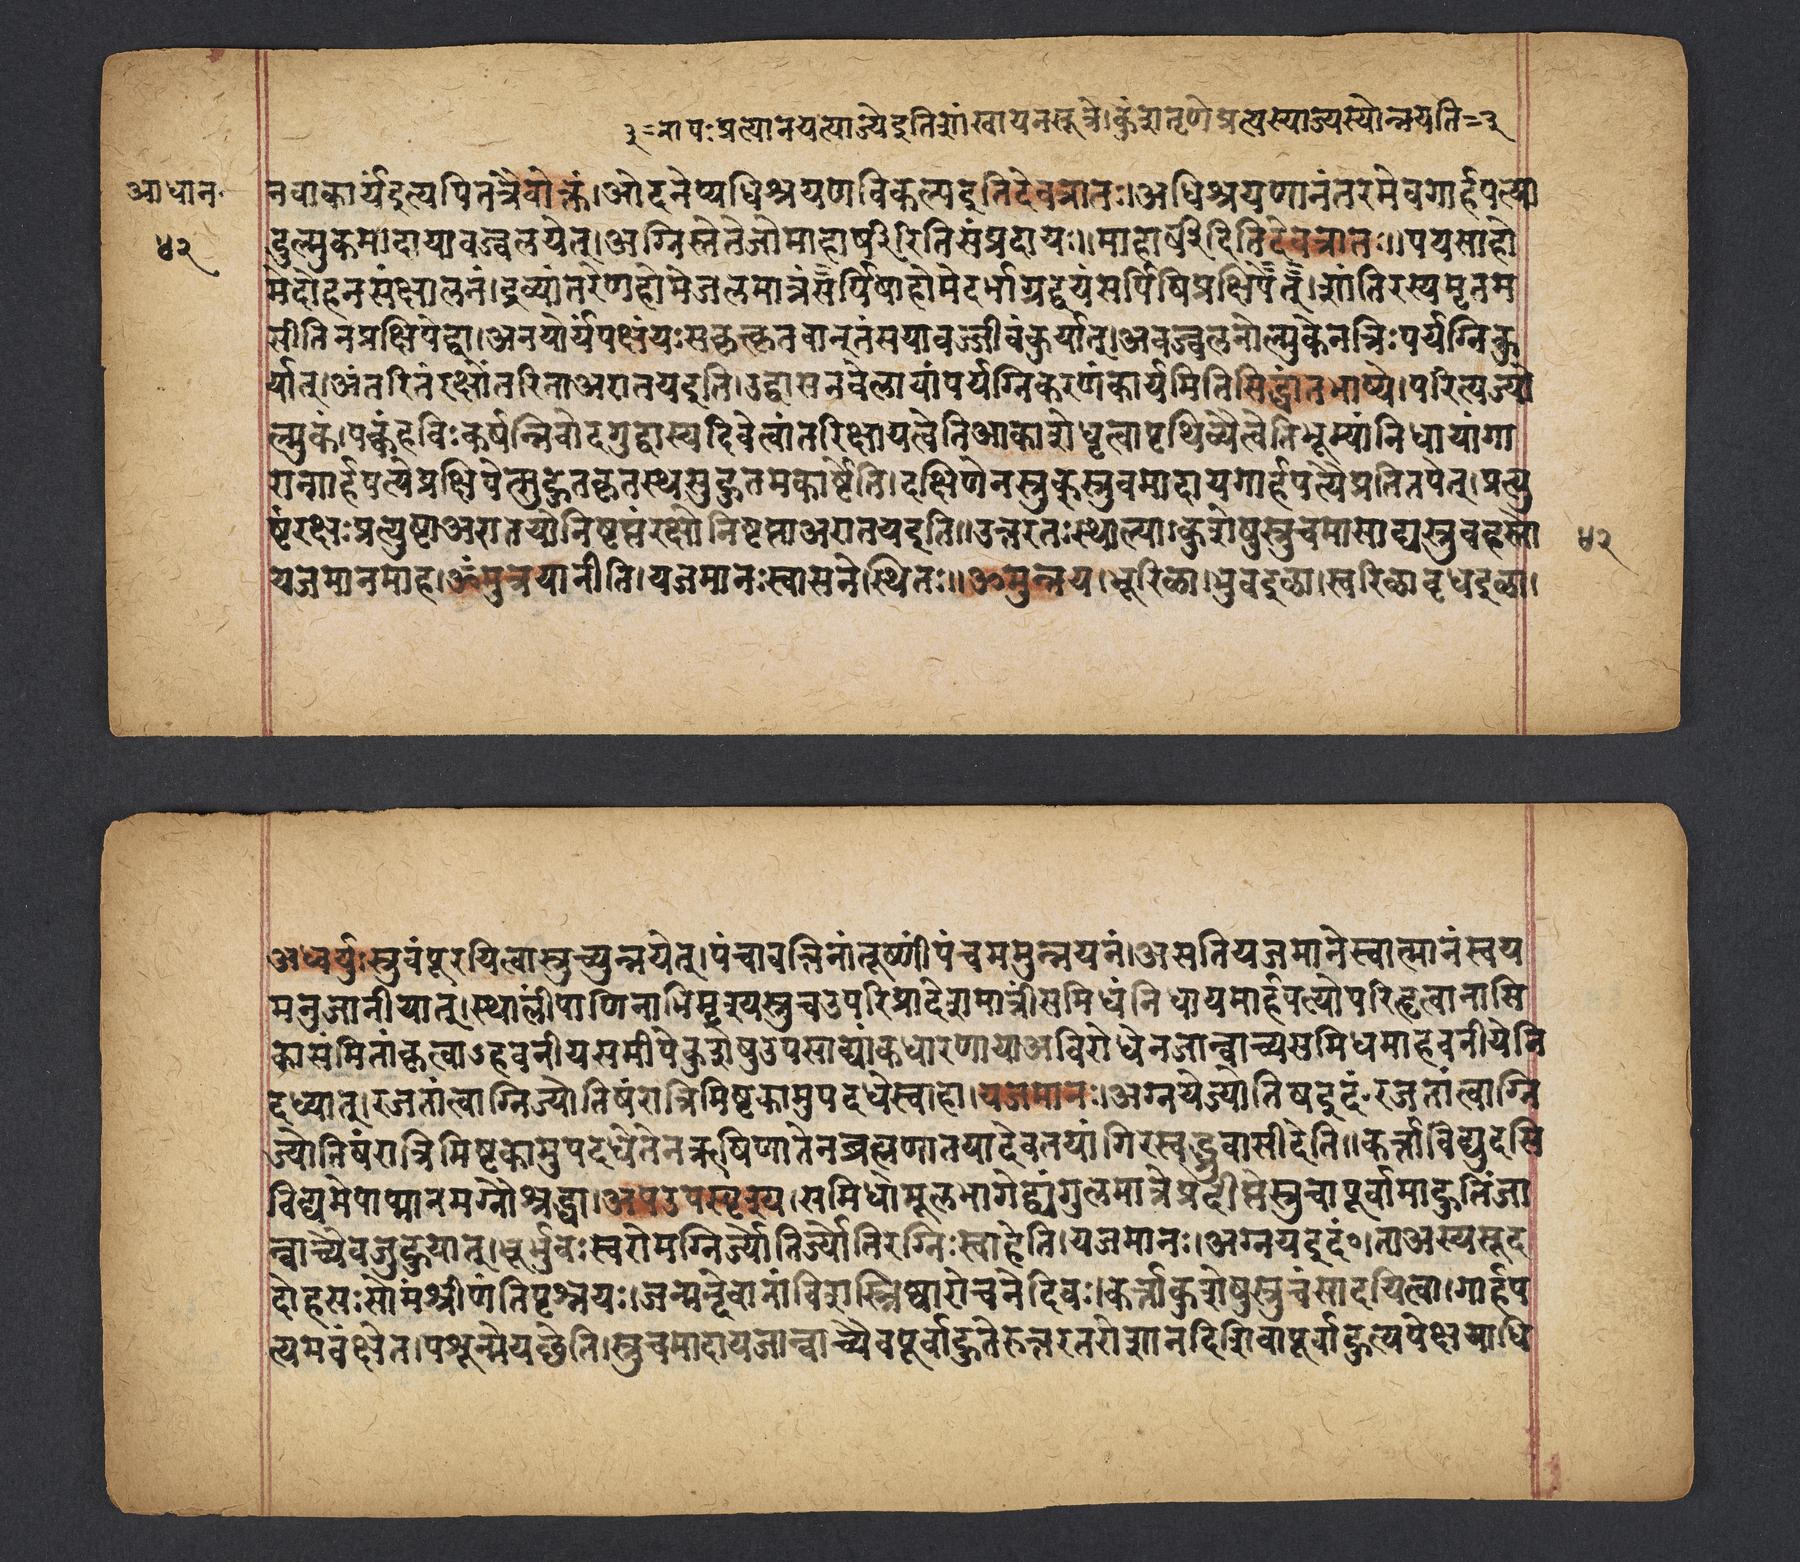 ३=नापःप्रत्यानयत्याज्येइतिशांखायनसूत्रे।कुशतृणेप्रत्यस्याज्यस्योन्नयति=३
आधान॰
४२
नवाकार्यइत्यपितत्रैवोक्तं।ओदनेप्यधिश्रयणविकल्पइतिदेवत्रातः।अधिश्रयणानंतरमेवगार्हपत्यो
दुल्मुकमादायावज्वलयेत्।अग्निस्तेतेजोमाहार्षीरितिसंप्रदायः॥माहार्षीदितिदेवत्रातः॥पयसाहो
मेदोहनसंक्षालनं।द्रव्यांतरेणहोमेजलमात्रंसर्पिषाहोमेदर्भाग्रद्वयंसर्पिषिप्रक्षिपेत्।शांतिरस्यमृतम
सीतिनप्रक्षिपेद्वा।अनयोर्यपक्षंयःसकृत्कृतवान्तंसयावज्जीवंकुर्यात्।अवज्वलनोल्मुकेनत्रिःपर्यग्निकु
र्यात्।अंतरितंरक्षोंतरिताअरातयइति।उद्वासनवेलायांपर्यग्निकरणंकार्यमितिसिद्धांतभाष्ये।परित्यज्यो
ल्मुकं।पक्वंहविःकर्षन्निवोदगुद्वास्यदिवेत्वांतरिक्षायत्वेतिआकाशेधृत्वापृथिव्यैत्वेतिभूम्यांनिधायांगा
रान्गार्हपत्येप्रक्षिपेत्सुहुतकृतस्थसुहुतमकार्ष्टेति।दक्षिणेनस्त्रुक्स्त्रुवमादायगार्हपत्येप्रतितपेत्।प्रत्यु
ष्टंरक्षःप्रत्युष्टाअरातयोनिष्टप्तंरक्षोनिष्टप्ताअरातयइति॥उत्तरतःस्थाल्याःकुशेषुस्त्रुचमासाद्यस्त्रुवहस्तो
४२
यजमानमाह।ॐमुन्नयानीति।यजमानःस्वासनेस्थितः॥ॐमुन्नय।भूरिळा।भुवइळा।स्वरिळावृधइळा।
अध्वर्युःस्त्रुवंपूरयित्वास्त्रुच्युन्नयेत्।पंचावत्तिनांतूष्णींपंचममुन्नयनं।असतियजमानेस्वात्मानंस्वय
मनुजानीयात्।स्थालींपाणिनाभिमृश्यस्त्रुचउपरिप्रादेशमात्रींसमिधंनिधायगार्हपत्योपरिहृत्वानासि
कासंमितांकृत्वाऽहवनीयसमीपेकुशेषुउपसाद्यांकधारणायाअविरोधेनजान्वाच्यसमिधमाहवनीयेनि
दध्यात्।रजतांत्वाग्निज्योतिषंरात्रिमिष्टकामुपदधेस्वाहा।यजमानः।अग्नयेज्योतिषइदं॰रजतांत्वाग्नि
ज्योतिषंरात्रिमिष्टकामुपदधेतेनऋषिणातेनब्रह्मणातयादेवतयांगिरस्वद्ध्रुवासीदेति॥कर्त्ताविद्युदसि
विद्यमेपाप्मानमग्नौश्रद्धा।अपउपस्पृश्य।समिधोमूलभागेद्व्यंगुलमात्रेप्रदीप्तेस्त्रुचापूर्वामाहुतिंजा
न्वाच्यैवजुहुयात्।भूर्भुवःस्वरोमग्निर्ज्योतिर्ज्योतिरग्निःस्वाहेति।यजमानः।अग्नयइदं॰।ताअस्यसूद
दोहसःसोमंश्रीणंतिपृश्नयः।जन्मन्देवानांविशस्त्रिष्वारोचनेदिवः।कर्त्ताकुशेषुस्त्रुचंसादयित्वा।गार्हप
त्यमवेक्षेत।पशून्मेयच्छेति।स्त्रुचमादायजान्वाच्यैवपूर्वाहुतेरुत्तरतरोशानदिशिवापूर्वाहुत्यपेक्षयाधि